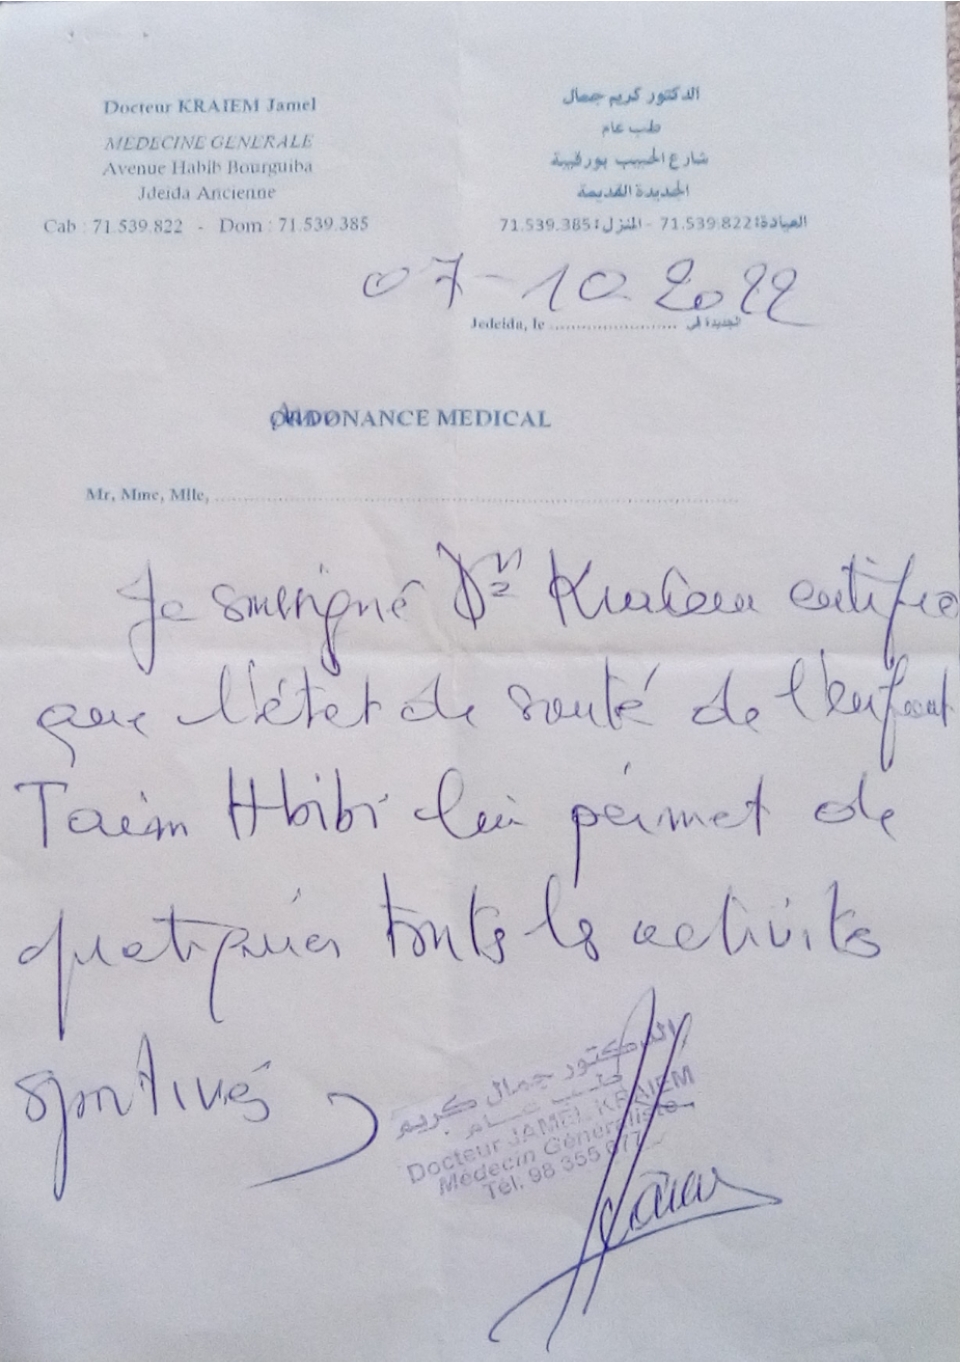 Docteur KRAIEM Jamel
MEDECINE GENERALE
Avenue Habib Bourguiba
Jdeida Ancienne
Cab : 71.539.822 - Dom : 71.539.385
الدكتور كريم جمال
طب عام
شارع الحبيب بورقيبة
الجديدة القديمة
العيادة: 71.539.822 - المنزل: 71.539.385
07-10 2022
Jedeida, le ........................ الجديدة في
ORDONANCE MEDICAL
Mr, Mme, Mlle, ........................................................................
Je soussigné Dr Kraiem certifie
que l'état de santé de l'enfant
Taim Hbibi lui permet de
pratiquer touts les activités
sportives
الدكتور جمال كريم
طب عام
Docteur JAMEL KRAIEM
Médecin Généraliste
Tél. 98 355 077